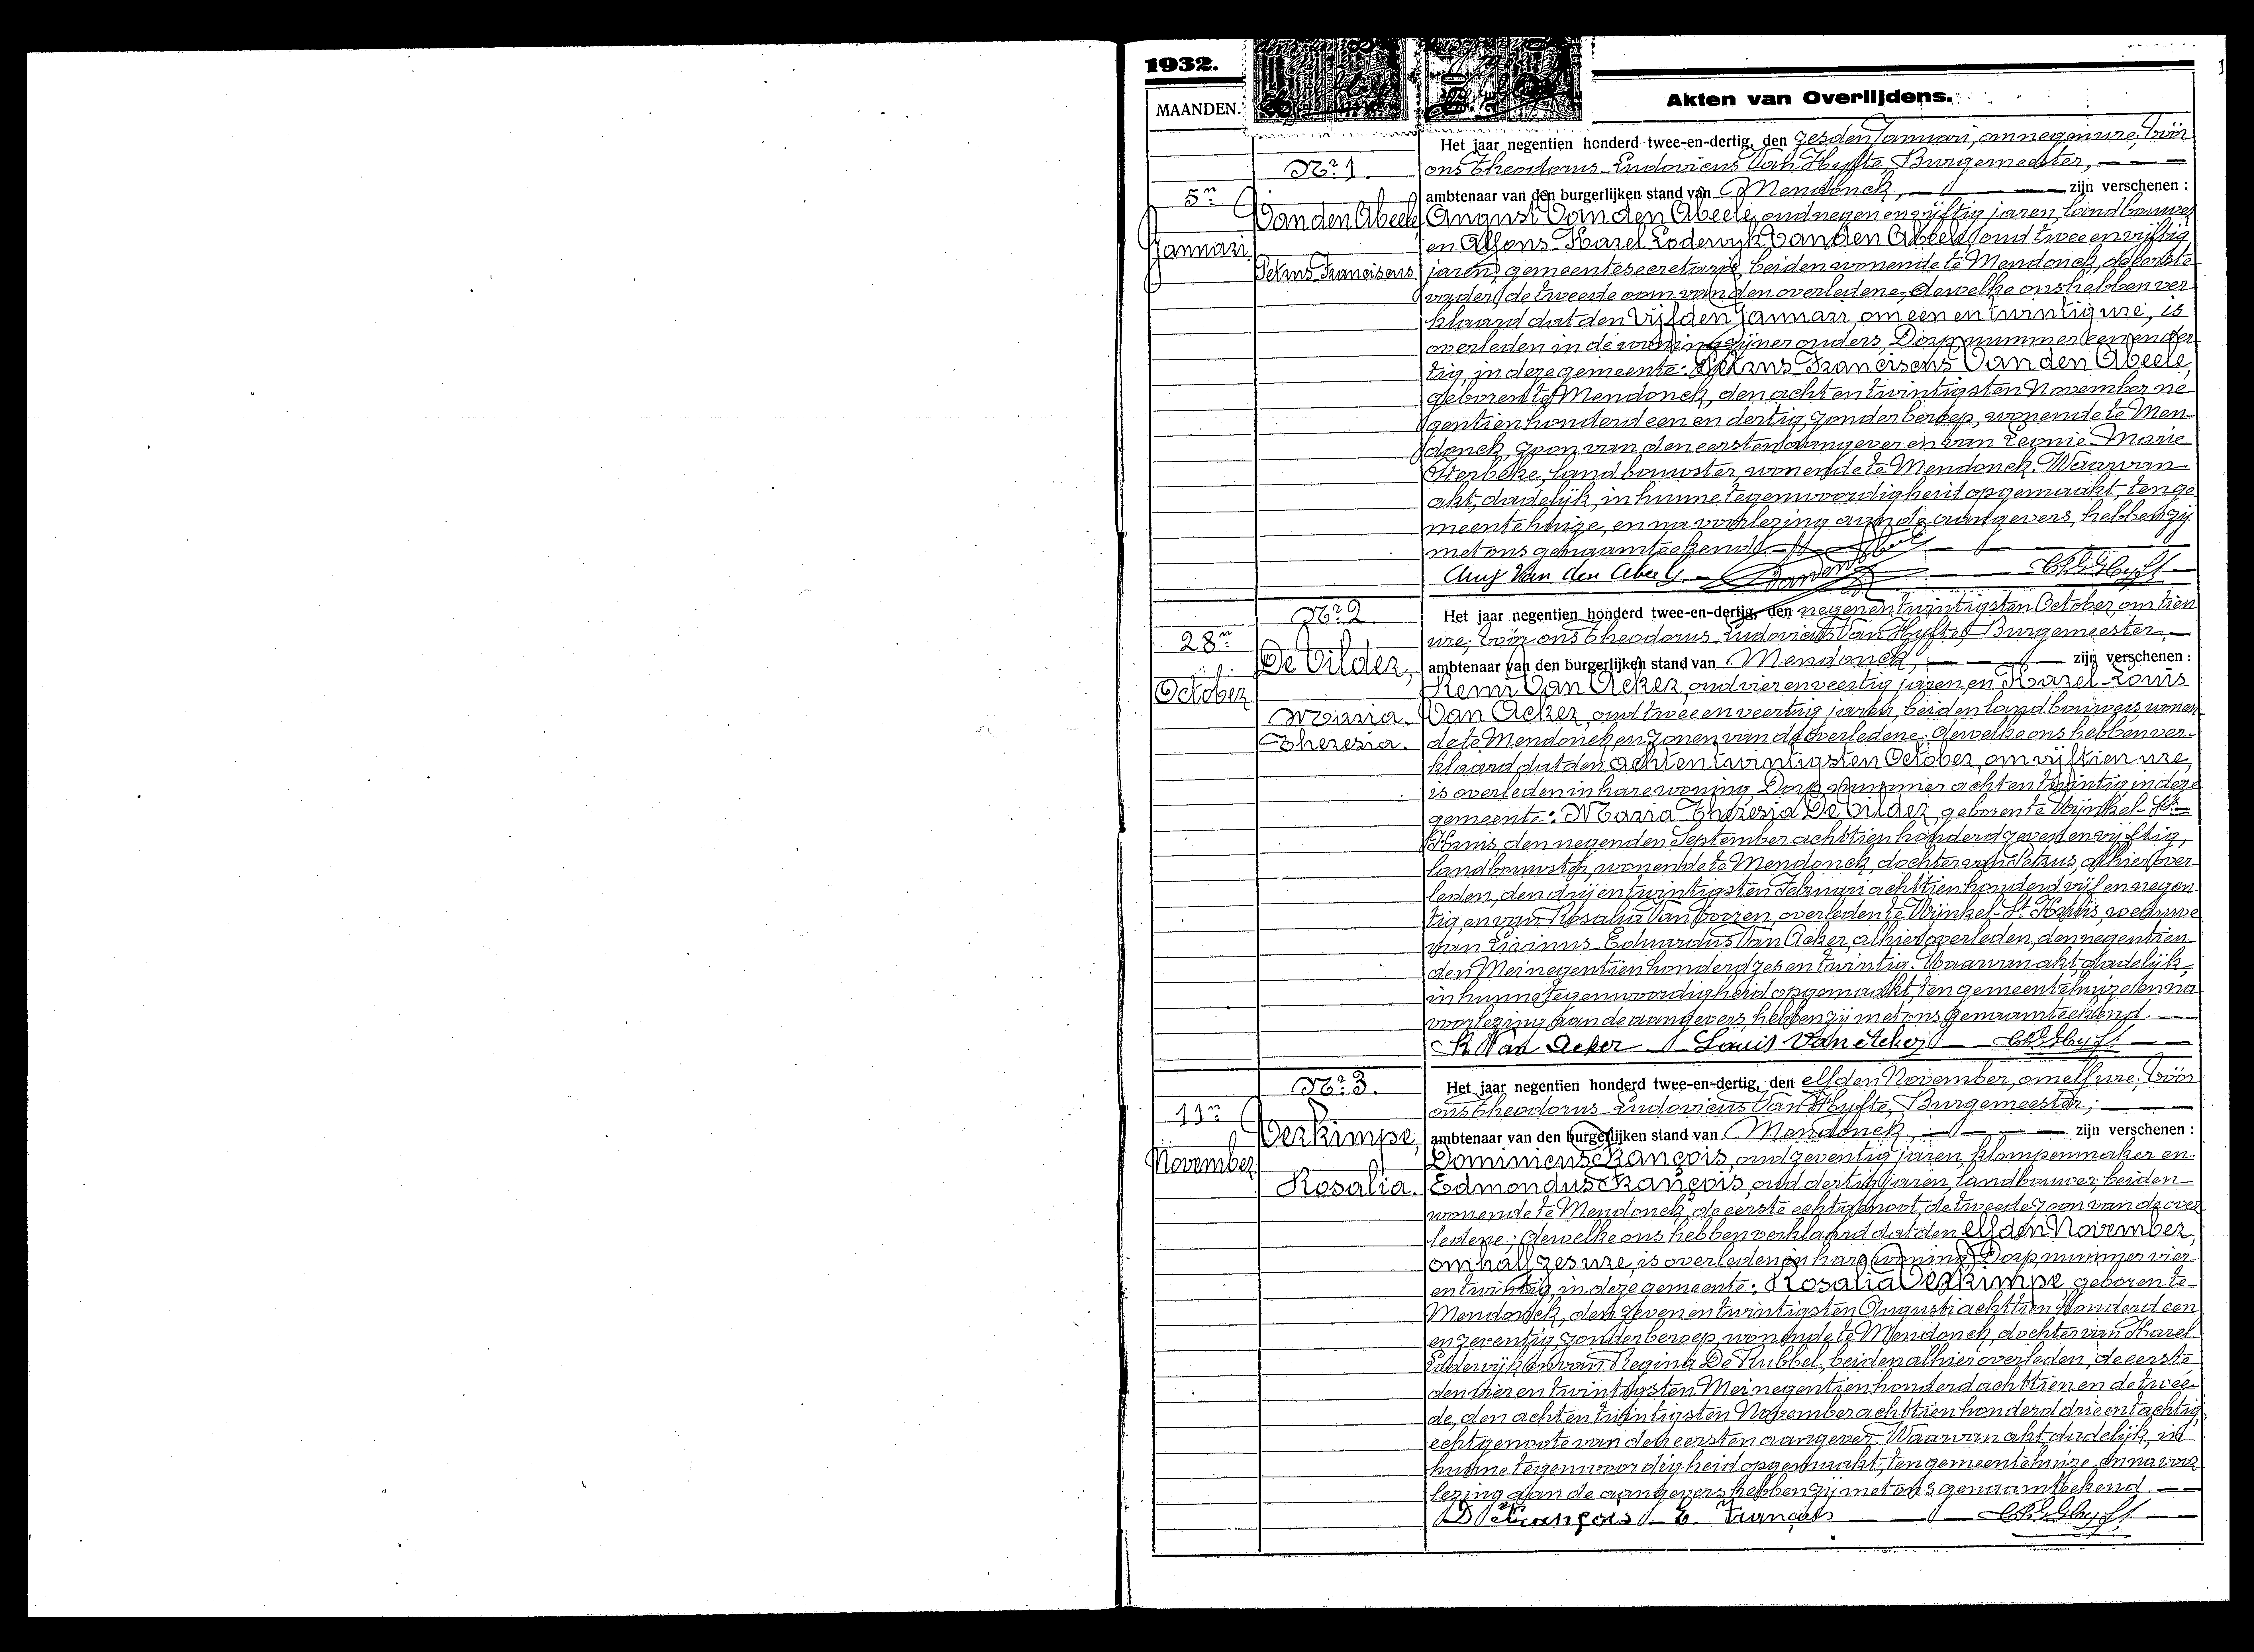 1932.
MAANDEN.
Akten van Overlijdens.
Het jaar negentien honderd twee-en-dertig, den zesden Januari, om negen ure, vóór
Nr. 1.
ons Theodorus Ludovicus Van Hyfte, Burgemeester,
5n
ambtenaar van den burgerlijken stand van Mendonck, zijn verschenen :
Van den Abeele,
August Van den Abeele, oud negen en vijftig jaren, landbouwer
Januari.
en Alfons Karel Lodewyk Van den Abeele, oud twee en vijftig
Petrus Franciscus
jaren, gemeentesecretaris, beiden wonende te Mendonck, de eerste
vader, de tweede oom van den overledene, dewelke ons hebben ver-
klaard dat den vijfden Januari, om een en twintig ure, is
overleden in de woning zijner ouders, Dorp nummer een en der-
tig, in deze gemeente: Petrus Franciscus Van den Abeele,
geboren te Mendonck, den acht en twintigsten November ne-
gentien honderd een en dertig, zonder beroep, wonende te Men-
donck, zoon van den eersten aangever en van Leonie Marie
Sterbeke, landbouwster, wonende te Mendonck. Waarvan
akt, dadelijk, in hunne tegenwoordigheid opgemaakt, ten ge-
meentehuize, en na voorlezing aan de aangevers, hebben zij
met ons genaamteekend.
Aug Van den Abeele
Nr. 2.
Het jaar negentien honderd twee-en-dertig, den negen en twintigsten October, om tien
28n
ure, vóór ons Theodorus Ludovicus Van Hyfte, Burgemeester,
De Vilder,
ambtenaar van den burgerlijken stand van Mendonck, zijn verschenen :
October.
Remi Van Acker, oud vier en veertig jaren, en Karel Louis
Maria
Van Acker, oud twee en veertig jaren, beiden landbouwers wonen-
Theresia.
de te Mendonck en zonen van de overledene; dewelke ons hebben ver-
klaard dat den acht en twintigsten October, om vijftien ure,
is overleden in hare woning, Dorp nummer acht en twintig, in deze
gemeente: Maria Theresia De Vilder, geboren te Wijnkel-St-
Kruis, den negenden September achttien honderd zeven en vijftig,
landbouwster, wonende te Mendonck, dochter van Petrus, alhier over-
leden, den drij en twintigsten Februari achttien honderd vijf en negen-
tig, en van Rosalia Van Vooren, overleden te Wijnkel-St. Kruis, weduwe
van Livinus Eduardus Van Acker, alhier overleden, den negentien-
den Mei negentien honderd zes en twintig. Waarvan akt, dadelijk,
in hunne tegenwoordigheid opgemaakt, ten gemeentehuize, en na
voorlezing aan de aangevers, hebben zij met ons genaamteekend.
R. Van Acker Louis Van Acker
Nr. 3.
Het jaar negentien honderd twee-en-dertig, den elfden November, om elf ure, vóór
11n
ons Theodorus Ludovicus Van Hyfte, Burgemeester,
Verkimpe,
ambtenaar van den burgerlijken stand van Mendonck, zijn verschenen :
November
Dominicus François, oud zeventig jaren, klompenmaker en
Rosalia.
Edmondus François, oud dertig jaren, landbouwer, beiden
wonende te Mendonck, de eerste echtgenoot, de tweede zoon van de over-
ledene; dewelke ons hebben verklaard dat den elfden November,
om half zes ure, is overleden in hare woning, Dorp nummer vier
en twintig, in deze gemeente: Rosalia Verkimpe, geboren te
Mendonck, den zeven en twintigsten Augusti achttien honderd een
en zeventig, zonder beroep, wonende te Mendonck, dochter van Karel
Lodewijk en van Regina De Kubbel, beiden alhier overleden, de eerste
den vier en twintigsten Mei negentien honderd achttien en de twee-
de, den acht en twintigsten November achttien honderd drie en tachtig,
echtgenoote van den eersten aangever. Waarvan akt, dadelijk, in
hunne tegenwoordigheid opgemaakt, ten gemeentehuize, en na voor-
lezing aan de aangevers hebben zij met ons genaamteekend.
D François E. François